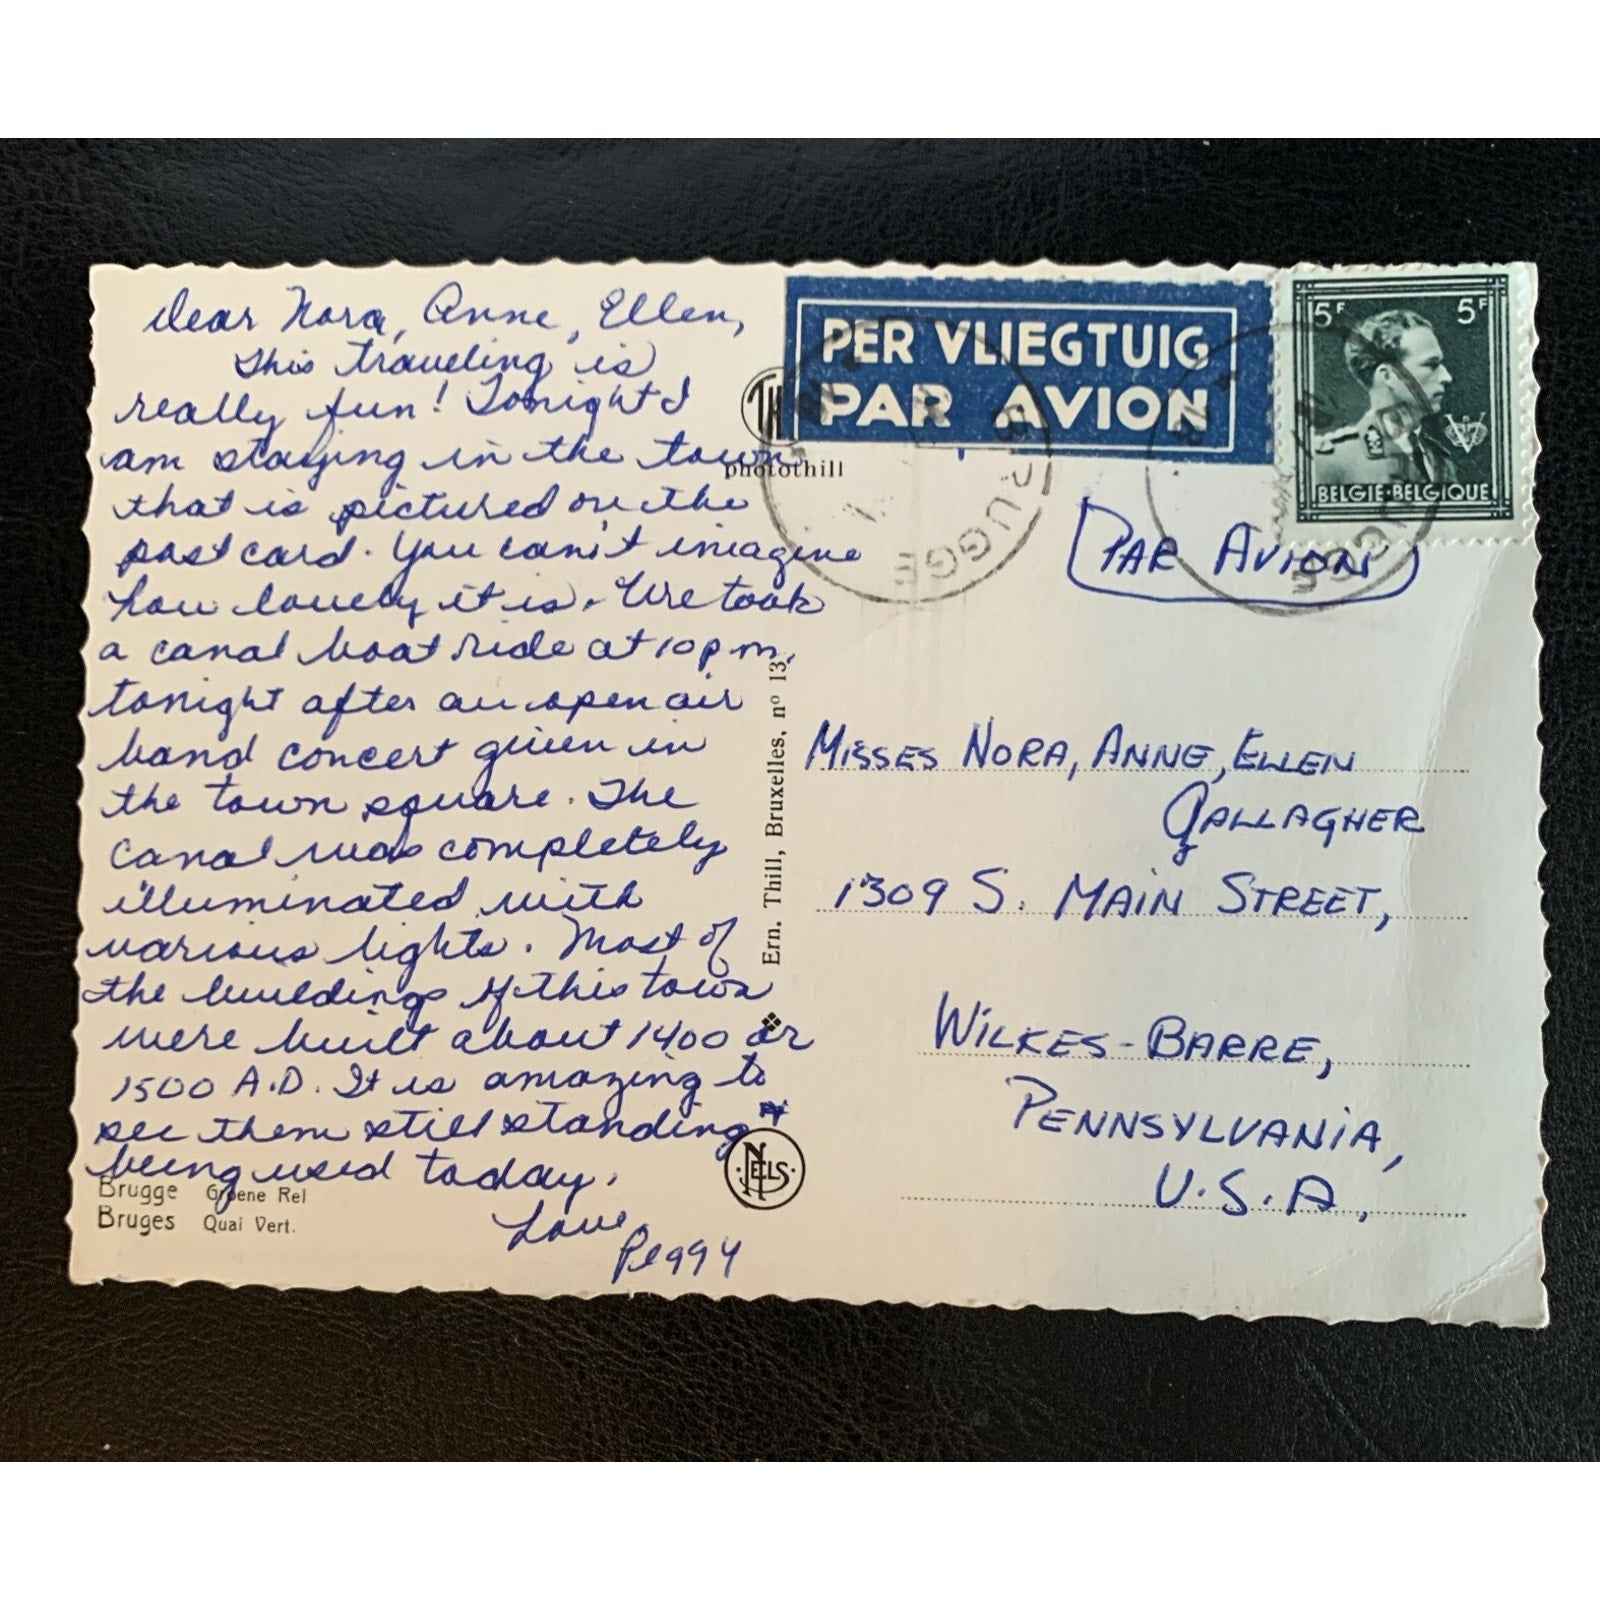 Dear Nora, Anne, Ellen,
This traveling is
really fun! Tonight I
am staying in the town
that is pictured on the
post card. You can't imagine
how lovely it is. We took
a canal boat ride at 10 p.m.
tonight after an open air
band concert given in
the town square. The
canal was completely
illuminated with
various lights. Most of
the buildings of this town
were built about 1400 or
1500 A.D. It is amazing to
see them still standing +
being used today.
Love,
Peggy
Brugge Groene Rei
Bruges Quai Vert.
photothill
Ern. Thill, Bruxelles, nº 13
NELS
PER VLIEGTUIG
PAR AVION
BRUGGE
5F 5F
BELGIE-BELGIQUE
BRUGGE
PAR AVION
MISSES NORA, ANNE, ELLEN
GALLAGHER
1309 S. MAIN STREET,
WILKES-BARRE,
PENNSYLVANIA,
U.S.A.